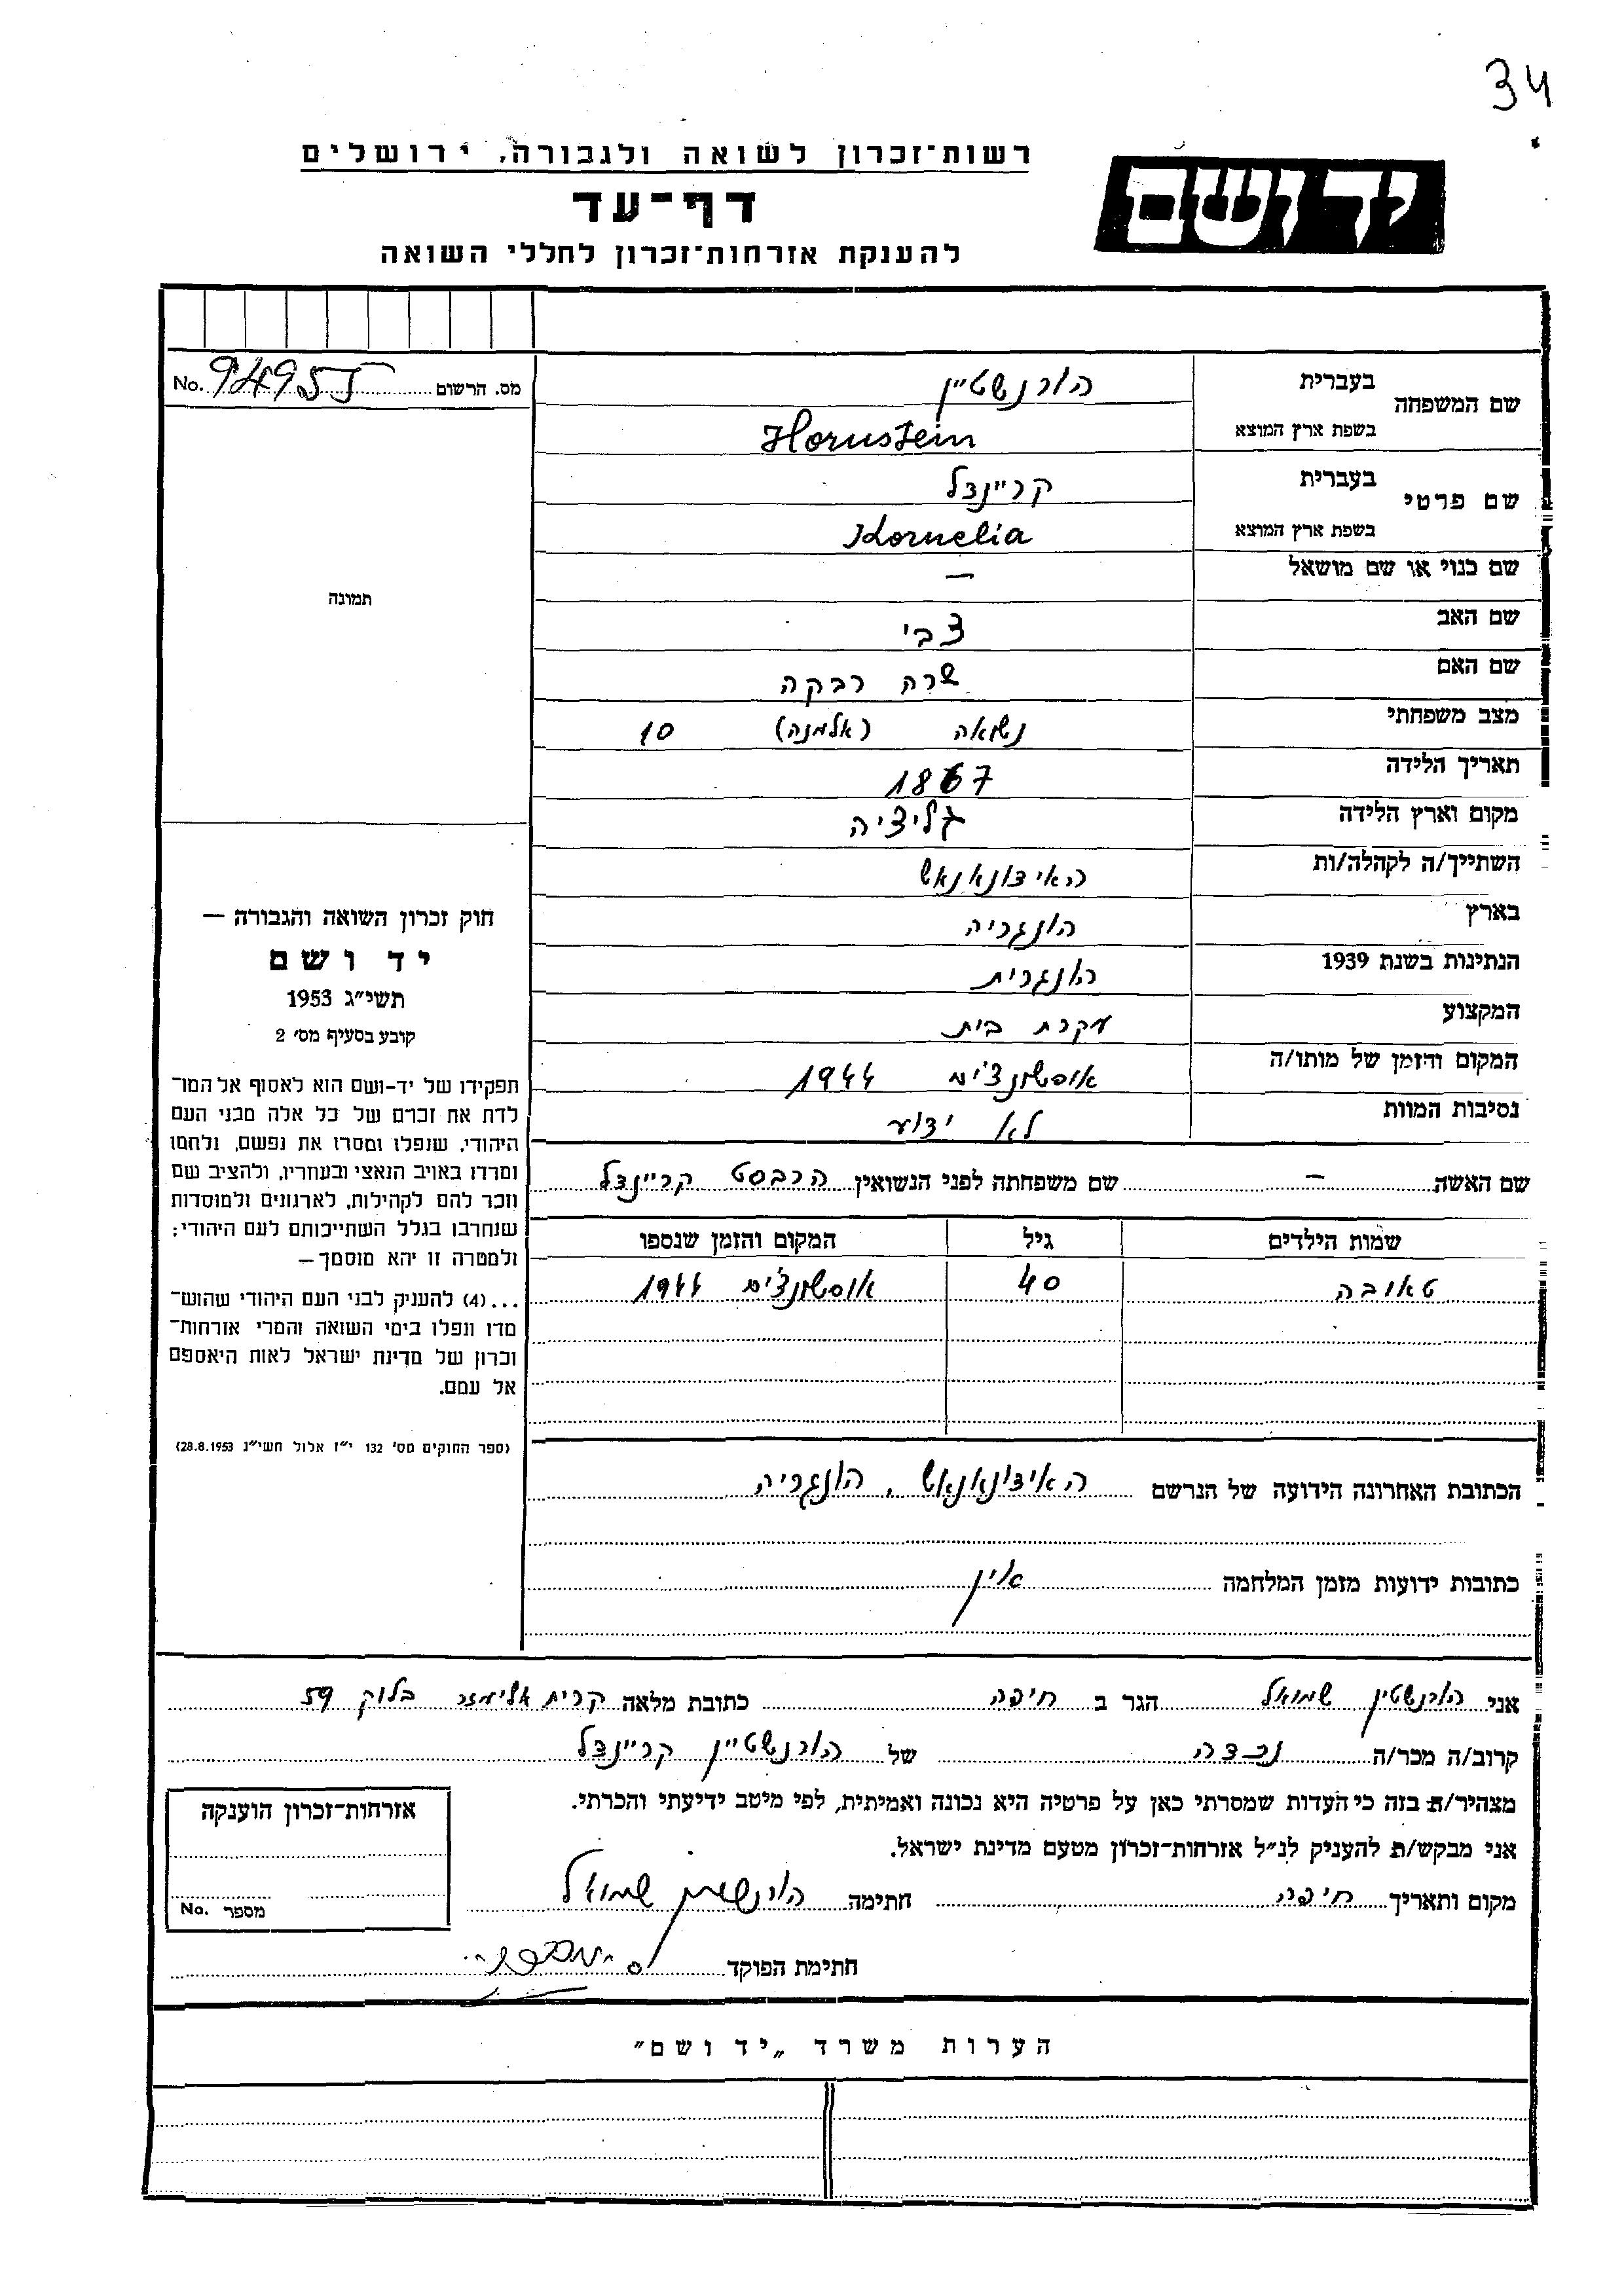 34
יד ושם
רשות־זכרון לשואה ולגבורה, ירושלים
דף־עד
להענקת אזרחות־זכרון לחללי השואה
מס. הרשום 94955 No.
שם המשפחה בעברית הורנשטיין
בשפת ארץ המוצא Hornstein
שם פרטי בעברית קריינדל
בשפת ארץ המוצא Kornelia
שם כנוי או שם מושאל –
שם האב צבי
שם האם שרה רבקה
מצב משפחתי נשואה (אלמנה) 10
תאריך הלידה 1867
מקום וארץ הלידה גליציה
השתייך/ה לקהלה/ות האידונאנאש
בארץ הונגריה
הנתינות בשנת 1939 הונגרית
המקצוע עקרת בית
המקום והזמן של מותו/ה אושוינצ'ים 1944
נסיבות המוות לא ידוע
שם האשה – שם משפחתה לפני הנשואין הרבסט קריינדל
שמות הילדים גיל המקום והזמן שנספו
טאובה 40 אושוינצ'ים 1944
הכתובת האחרונה הידועה של הנרשם האידונאנאש, הונגריה
כתובות ידועות מזמן המלחמה אין
תמונה
חוק זכרון השואה והגבורה –
יד ושם
תשי״ג 1953
קובע בסעיף מס' 2
תפקידו של יד-ושם הוא לאסוף אל המו־
לדת את זכרם של כל אלה מבני העם
היהודי, שנפלו ומסרו את נפשם, נלחמו
ומרדו באויב הנאצי ובעוזריו, ולהציב שם
וזכר להם לקהילות, לארגונים ולמוסדות
שנחרבו בגלל השתייכותם לעם היהודי;
ולמטרה זו יהא מוסמך –
...(4) להעניק לבני העם היהודי שהוש־
מדו ונפלו בימי השואה והמרי אזרחות־
זכרון של מדינת ישראל לאות היאספם
אל עמם.
(ספר החוקים מס' 132 י״ז אלול תשי״ג 28.8.1953)
אני הורנשטין שמואל הגר ב חיפה כתובת מלאה קרית אליעזר בלוק 59
קרוב/ה מכר/ה נכדה של הורנשטיין קריינדל
מצהיר/ת בזה כי העדות שמסרתי כאן על פרטיה היא נכונה ואמיתית, לפי מיטב ידיעתי והכרתי.
אני מבקש/ת להעניק לנ״ל אזרחות־זכרון מטעם מדינת ישראל.
מקום ותאריך חיפה חתימה הורנשטין שמואל
חתימת הפוקד
אזרחות־זכרון הוענקה
מספר No.
הערות משרד „יד ושם״